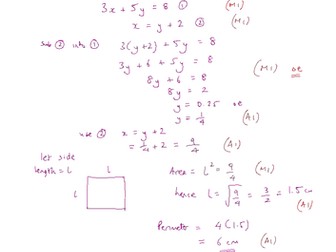 3x + 5y = 8 ① (M1)
x = y + 2 ② (M1)
Sub ② into ① 3(y+2) + 5y = 8
3y + 6 + 5y = 8
8y + 6 = 8 (M1) oe
8y = 2
y = 0.25 oe
y = 1/4 (A1)
use ② x = y + 2
= 1/4 + 2 = 9/4 (A1)
let side
length = l
l
l
Area = l² = 9/4 (M1)
hence l = √9/4 = 3/2 = 1.5 cm
(A1)
Perimeter = 4(1.5)
= 6 cm (A1)